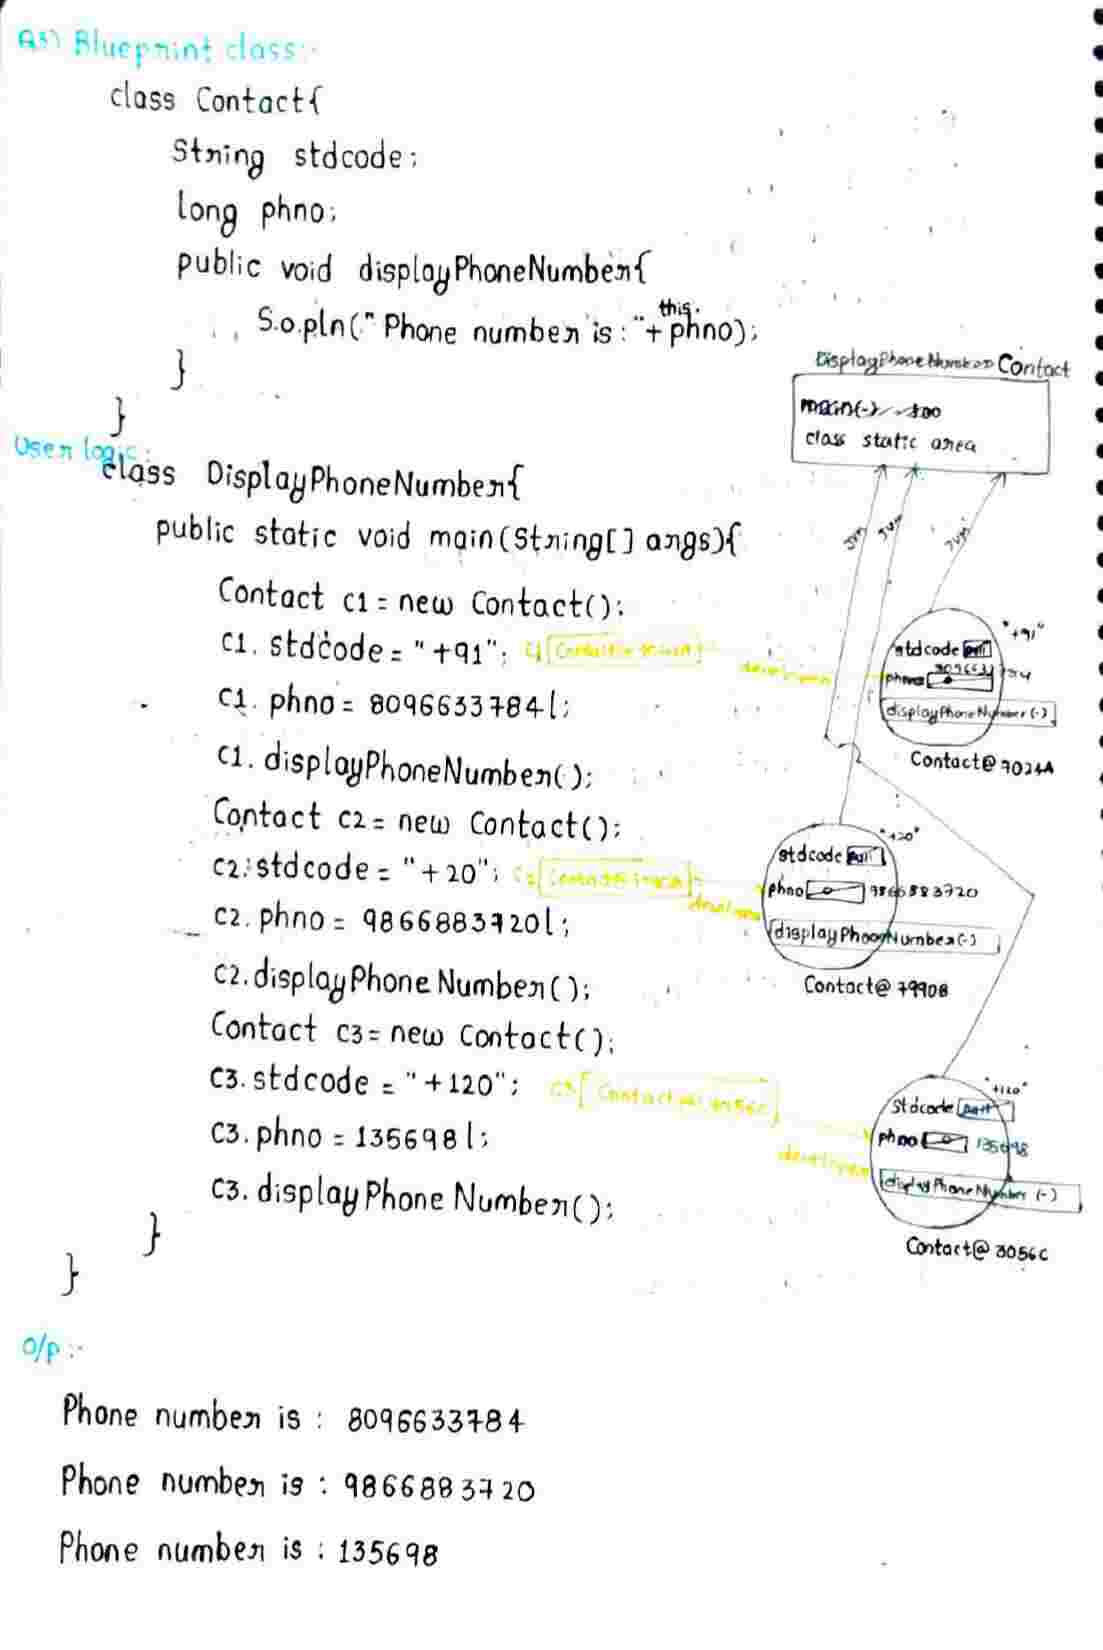 Q3) Blueprint class:-
class Contact{
String stdcode;
long phno;
public void displayPhoneNumber{
S.o.pln("Phone number is : "+ this.phno);
}
}
User logic:
class DisplayPhoneNumber{
public static void main(String[] args){
Contact c1 = new Contact();
c1. stdcode = "+91";
c1. phno = 8096633784l;
c1. displayPhoneNumber();
Contact c2 = new Contact();
c2.stdcode = "+20";
c2. phno = 9866883720l;
c2.displayPhoneNumber();
Contact c3 = new Contact();
c3.stdcode = "+120";
c3.phno = 135698l;
c3.displayPhoneNumber();
}
}
Contact
main(-)
class static area
JVM
JVM
JVM
"+91"
stdcode
phno
displayPhoneNumber(-)
Contact@7024A
c1
developer
"+20"
stdcode null
phno 0 9866883720
displayPhoneNumber(-)
Contact@79908
c2
developer
"+120"
stdcode null
phno 0 135698
displayPhoneNumber(-)
Contact@3056C
c3
developer
O/p :-
Phone number is : 8096633784
Phone number is : 9866883720
Phone number is : 135698